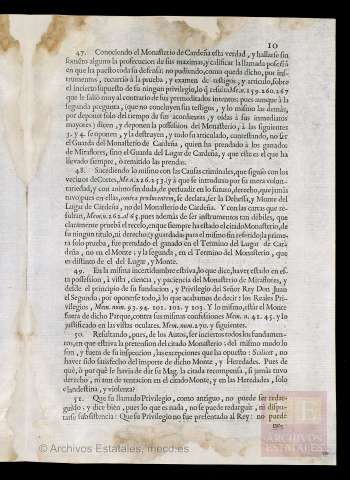 10
47. Conociendo el Monasterio de Cardeña esta verdad, y hallarse sin
fomento alguno la prosecucion de sus maximas, y calificar la llamada possesió
en que ha puesto toda su defensa: no pudiendo, como queda dicho, por ins-
trumentos, recurrió à la prueba, y examen de testigos, y articulò, sobre
el incierto supuesto de su ningun privilegio, lo q̃ resulta Mem. n. 259. 260. 267
que le saliò muy al contrario de sus premeditados intentos: pues aunque à la
segunda pregunta, (que no concluyen sus testigos, y lo mismo las demàs,
por deponer solo del tiempo de sus acordanzas, y oidas à sus inmediatos
mayores) dizen, y deponen la possession del Monasterio, à las siguientes
3. y 4. se oponen, y la destruyen, y todo su articulado, contestando, no ser
el Guarda del Monasterio de Cardeña, quien ha prendado à los ganados
de Miraflores, sino el Guarda del Lugar de Cardeña, y que este es el que ha
llevado siempre, ò remitido las prendas.
48. Sucediendo lo mismo con las Causas criminales, que siguiò con los
vecinos de Cortes, Mem. n. 226. 253. (y à que se introduxo por su mera volun-
tariedad, y con animo sin duda, de perturdir en lo futuro, derecho, que jamàs
tuvo pues en ellas, contra producentem, se declara, ser la Dehessa, y Monte del
Lugar de Cardeña, no del Monasterio de Cardeña. Y con las cartas que re-
sultan, Mem. n. 262. al 65. pues además de ser instrumentos tan dèbiles, que
claramente prueba el recelo, en que siempre ha estado el citado Monasterio, de
su ningun titulo, ni derecho; y guardadas para el mismo fin referido: la prime-
ra solo prueba, fue prendado el ganado en el Termino del Lugar de Car-
deña, no en el Monte; y la segunda, en el Termino del Monasterio, que
es distinto de el del Lugar, y Monte.
49. En la misma incertidumbre estriva, lo que dice, haver estado en es-
ta possession, à vista, ciencia, y paciencia del Monasterio de Miraflores, y
desde el principio de su fundacion, y Privilegio del Señor Rey Don Juan
el Segundo; por oponerse todo, à lo que acabamos de decir: los Reales Pri-
vilegios, Mem. num. 93. 94. 101. 102. y 103. Y lo mismo, estàr el Monte
fuera de dicho Parque, contra sus mismas confesiones Mem. n. 42. 45. y lo
justificado en las vistas oculares. Mem. num. 270. y siguientes.
50. Resultando, pues, de los Autos, ser inciertos todos los fundamen-
tos, en que estriva la pretension del citado Monasterio; del mismo modo lo
son, y fuera de su inspeccion, las excepciones que ha opuesto: Scilicet, no
haver sido satisfecho del importe de dicho Monte, y Heredades. Pues de
què, ò por què le havia de dàr su Mag. la citada recompensa, si jamàs tuvo
derecho, ni aun de tentacion en el citado Monte, y en las Heredades, solo
clandestina, y violenta?
51. Que su llamado Privilegio, como antiguo, no puede ser redar-
guido: y dice bien, pues lo que es nada, no se puede redarguir, ni dispu-
tarse subsistencia: Que su Privilegio no fue presentado al Rey: no puede
ARCHIVOS ESTATALES
© Archivos Estatales, mecd.es